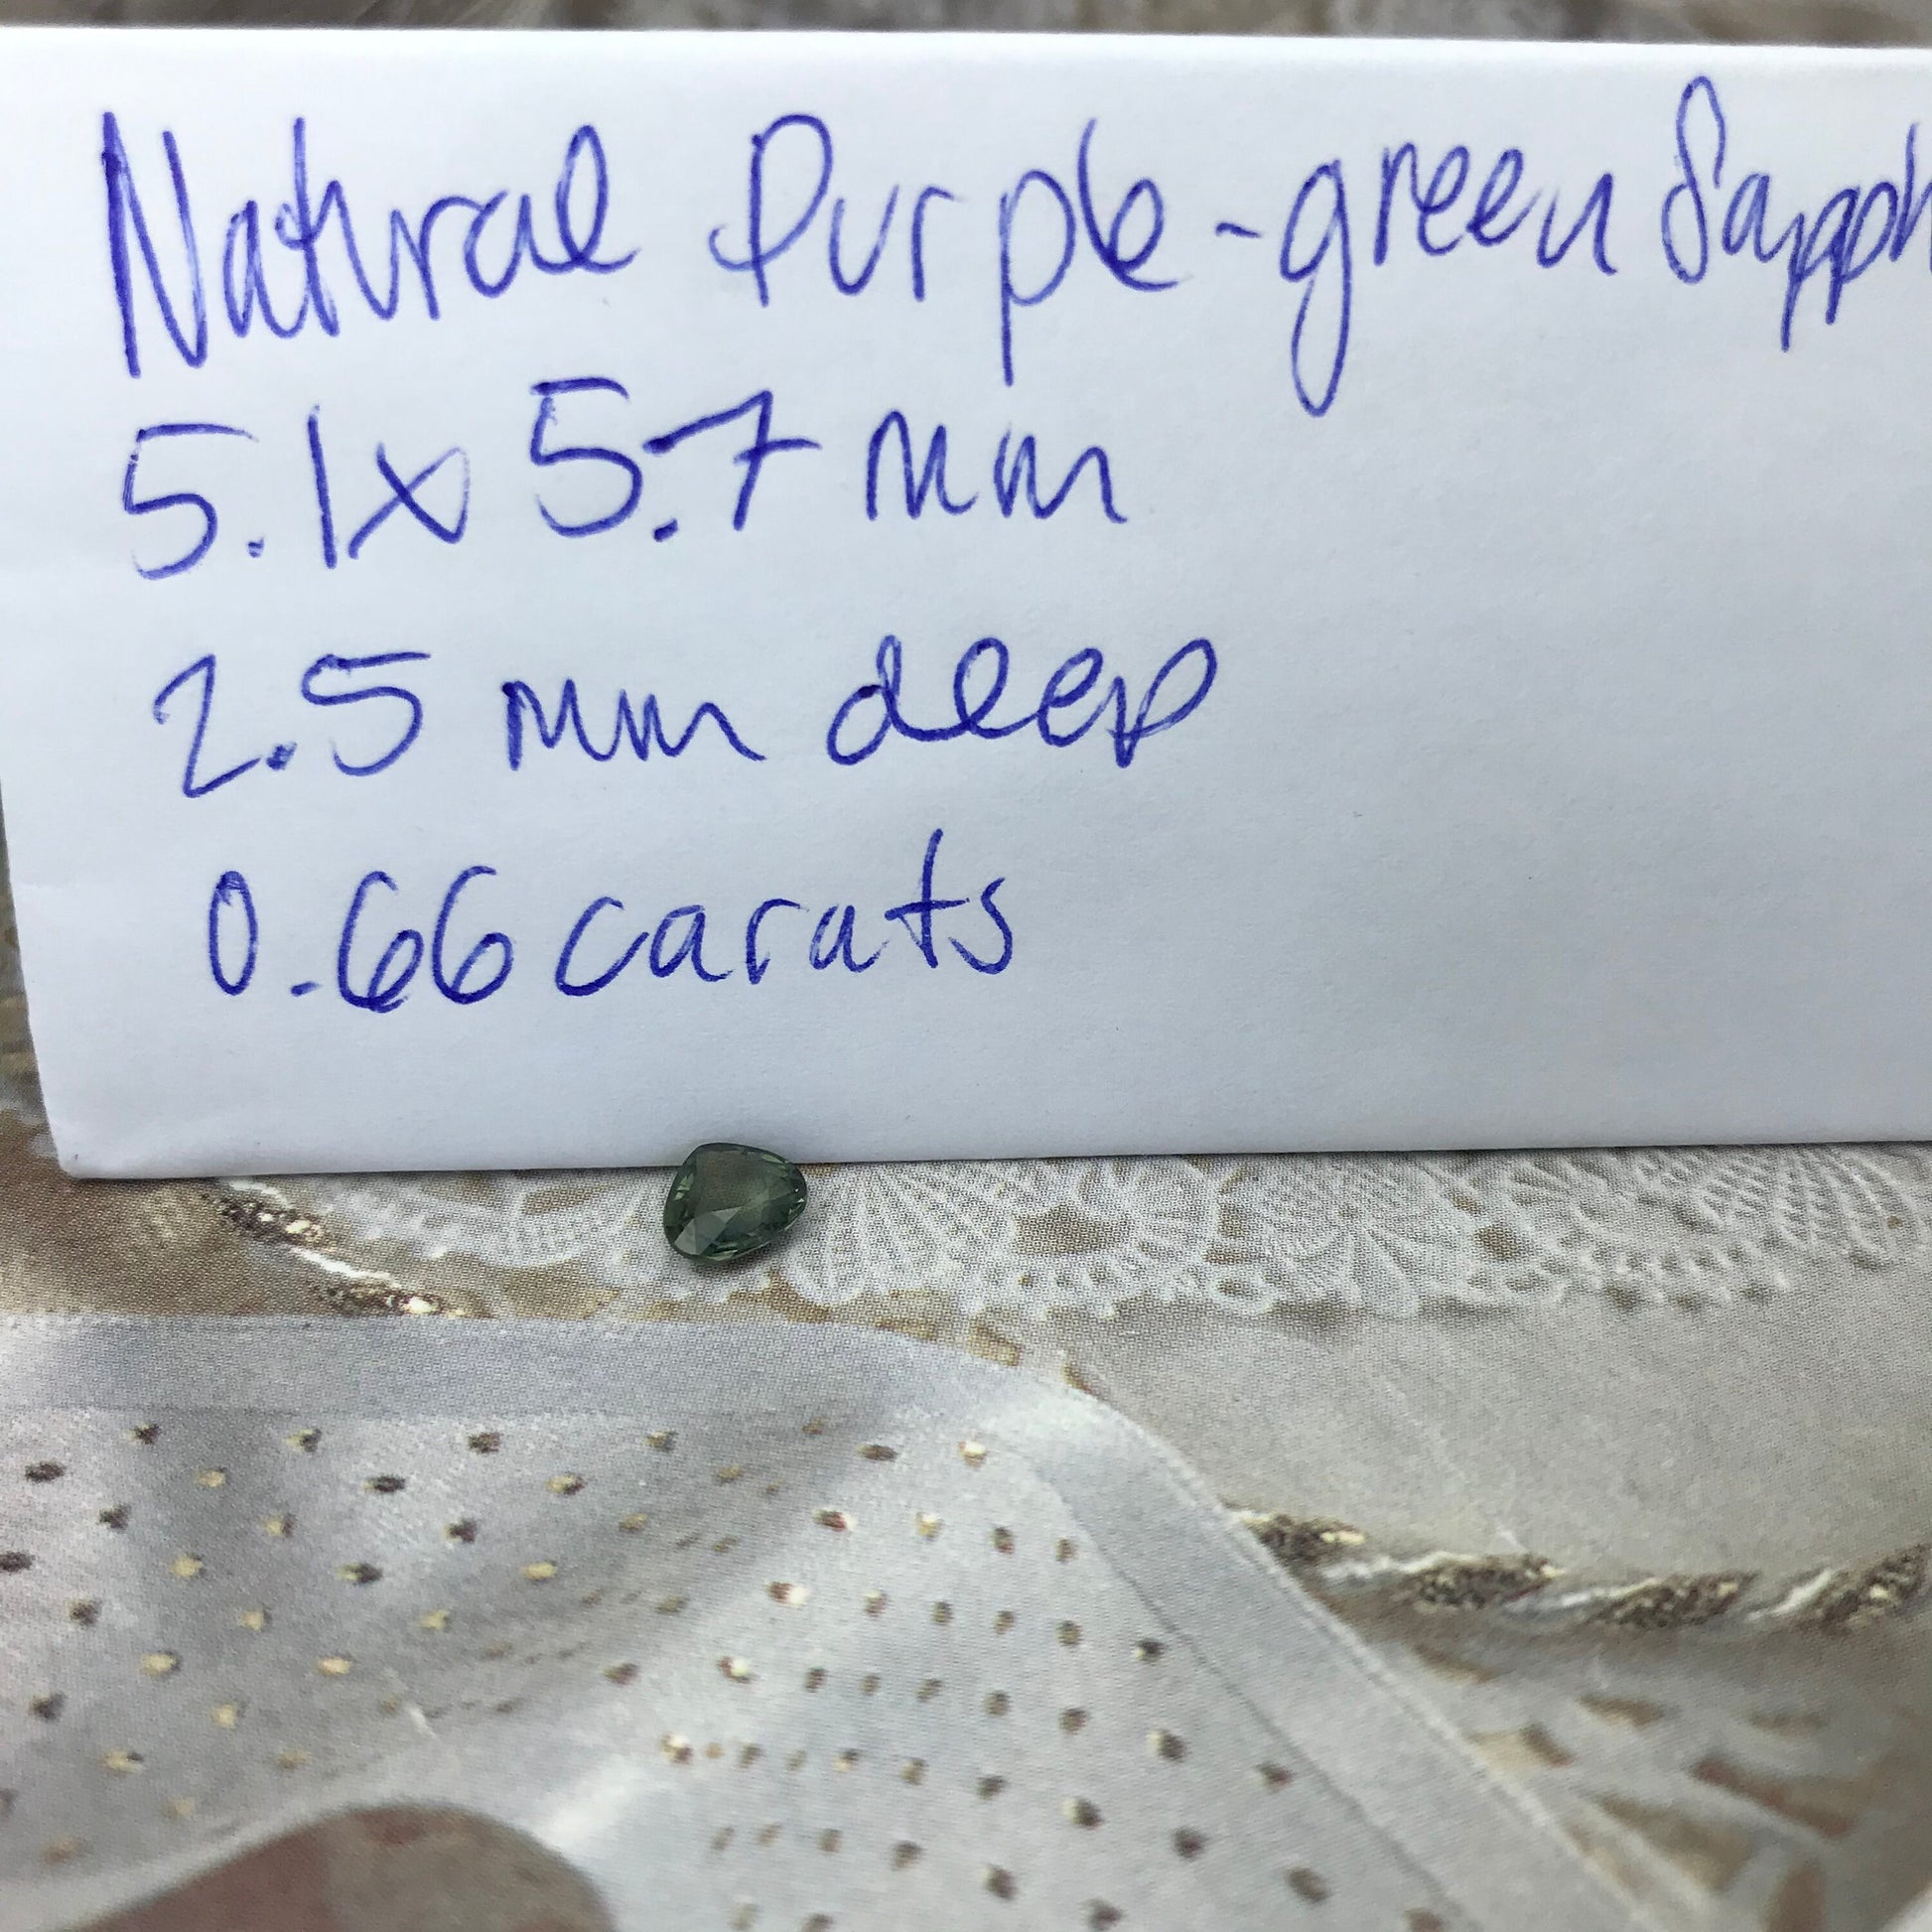 Natural Purple-green Sapph
5.1x5.7mm
2.5 mm deep
0.66 carats